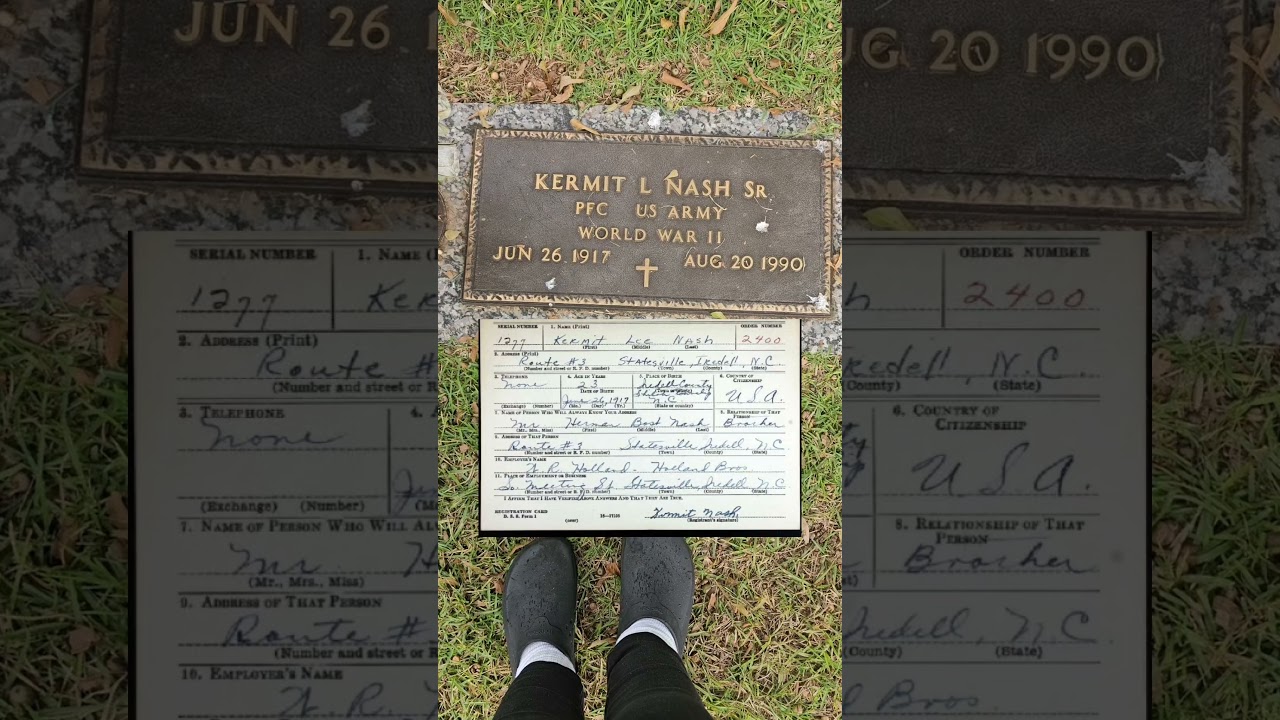 KERMIT L NASH SR.
PFC US ARMY
WORLD WAR II
JUN 26 1917 AUG 20 1990
SERIAL NUMBER 1. NAME (Print) ORDER NUMBER
1277 Kermit Lee Nash 2400
(First) (Middle) (Last)
2. ADDRESS (Print)
Route #3 Statesville, Iredell, N.C.
(Number and street or R. F. D. number) (Town) (County) (State)
3. TELEPHONE 4. AGE IN YEARS 5. PLACE OF BIRTH 6. COUNTRY OF CITIZENSHIP
none 23 Iredell County
DATE OF BIRTH (Town or county)
June 26, 1917 N.C. U.S.A.
(Exchange) (Number) (Mo.) (Day) (Yr.) (State or country)
7. NAME OF PERSON WHO WILL ALWAYS KNOW YOUR ADDRESS 8. RELATIONSHIP OF THAT PERSON
Mr Herman Bost Nash Brother
(Mr., Mrs., Miss) (First) (Middle) (Last)
9. ADDRESS OF THAT PERSON
Route #3 Statesville, Iredell, N.C.
(Number and street or R. F. D. number) (Town) (County) (State)
10. EMPLOYER'S NAME
Holland - Holland Bros
11. PLACE OF EMPLOYMENT OR BUSINESS
So. Meeting St. Statesville, Iredell, N.C.
(Number and street or R. F. D. number) (Town) (County) (State)
I AFFIRM THAT I HAVE VERIFIED ABOVE ANSWERS AND THAT THEY ARE TRUE.
REGISTRATION CARD
D. S. S. Form 1 (over) Kermit Nash
(Registrant's signature)